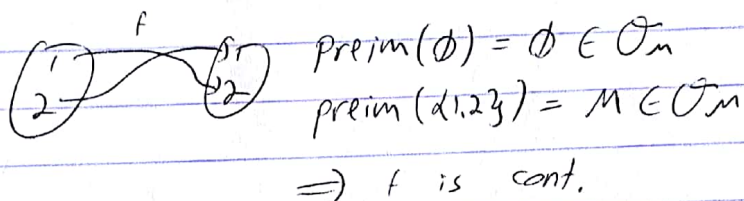 f
1 1 preim(∅) = ∅ ∈ O_M
2 2 preim({1,2}) = M ∈ O_M
⇒ f is cont.